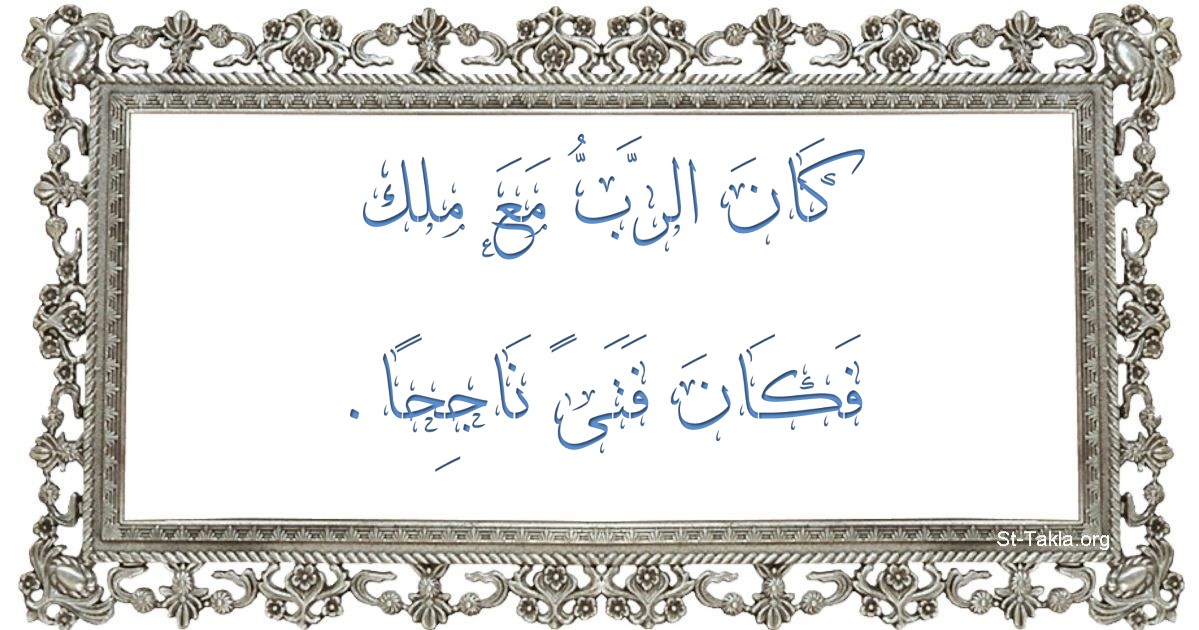 كَانَ الرَّبُّ مَعَ مِلك
فَكَانَ فَتَىً نَاجِحًا .
St-Takla.org